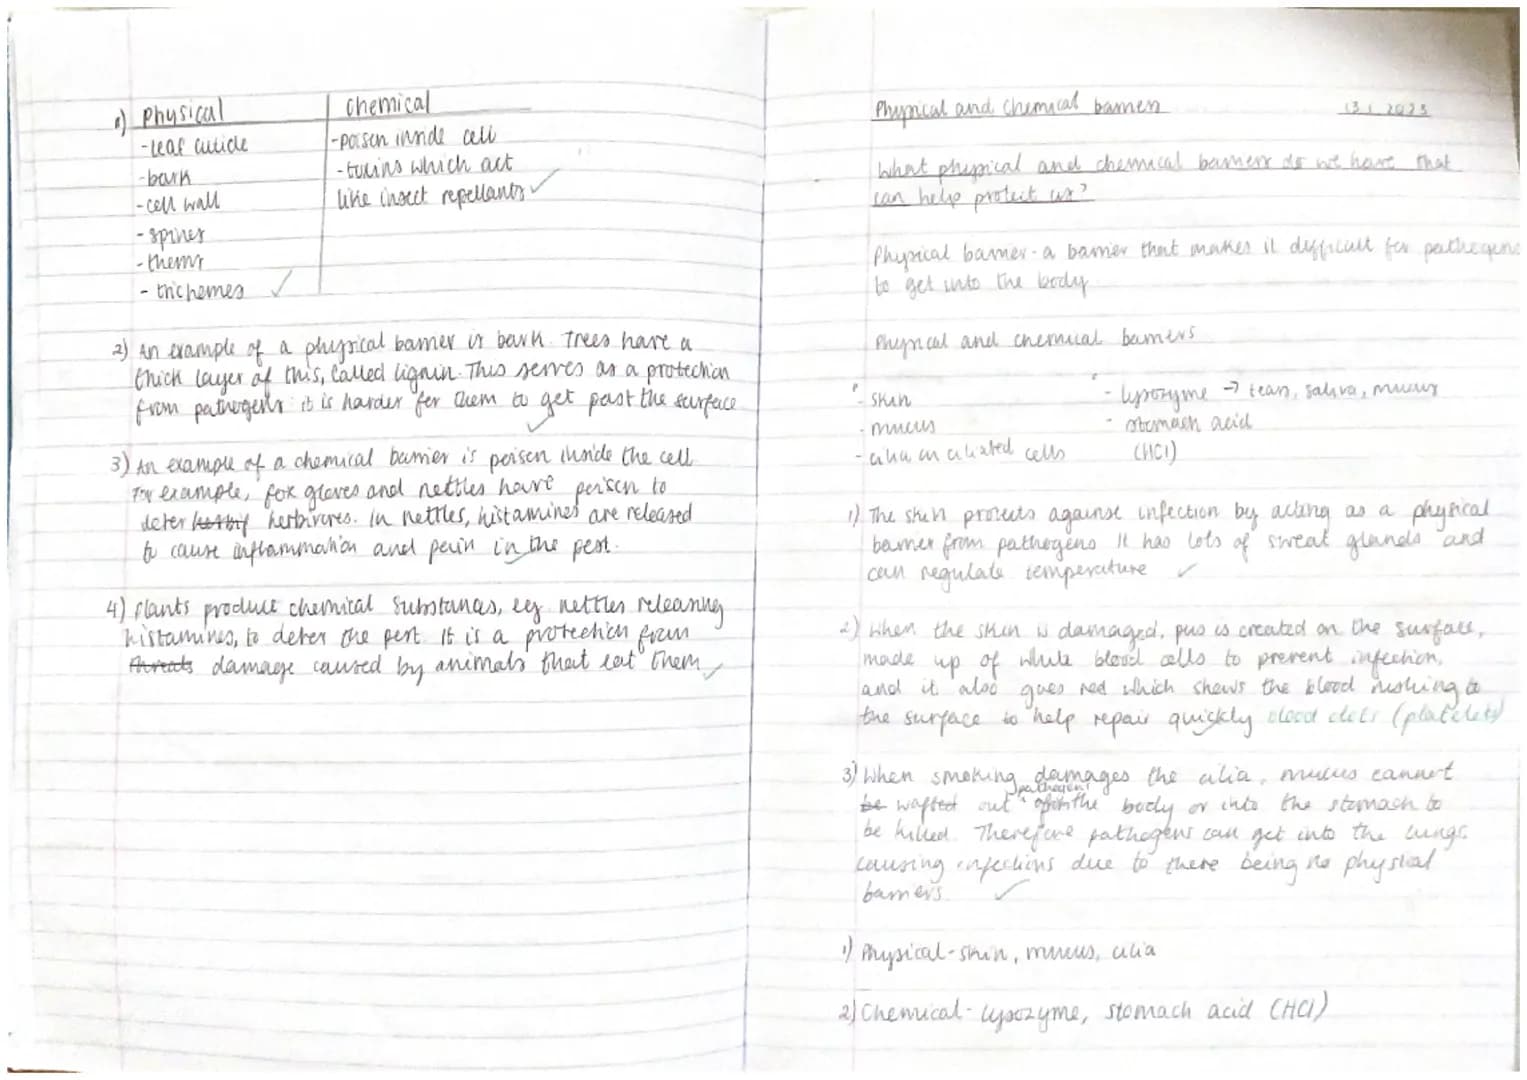 1) Physical | Chemical
-leaf cuticle | -poison inside cell
-bark | -toxins which act
-cell wall | like insect repellants ✓
-spines
-thorns
-trichomes ✓
2) An example of a physical barrier is bark. Trees have a
thick layer of this, called lignin. This serves as a protection
from pathogens it is harder for them to get past the surface
✓
3) An example of a chemical barrier is poison inside the cell
For example, fox gloves and nettles have poison to
deter herbivores. In nettles, histamines are released
to cause inflammation and pain in the pest.
4) Plants produce chemical substances, eg nettles releasing
histamines, to deter the pest. It is a protection from
threats damage caused by animals that eat them ✓
Physical and chemical barriers 13.1.2023
What physical and chemical barriers do we have that
can help protect us?
Physical barrier - a barrier that makes it difficult for pathogens
to get into the body
Physical and chemical barriers
- skin - lysozyme → tears, saliva, mucus
- mucus - stomach acid
- cilia on ciliated cells (HCl)
1) The skin protects against infection by acting as a physical
barrier from pathogens It has lots of sweat glands and
can regulate temperature ✓
2) When the skin is damaged, pus is created on the surface,
made up of white blood cells to prevent infection,
and it also goes red which shows the blood rushing to
the surface to help repair quickly blood clots (platelets)
3) When smoking damages the cilia, mucus cannot
be waft out pathogens the body or into the stomach to
be killed. Therefore pathogens can get into the lungs
causing infections due to there being no physical
barriers. ✓
1) Physical - skin, mucus, cilia
2) Chemical - lysozyme, stomach acid (HCl)